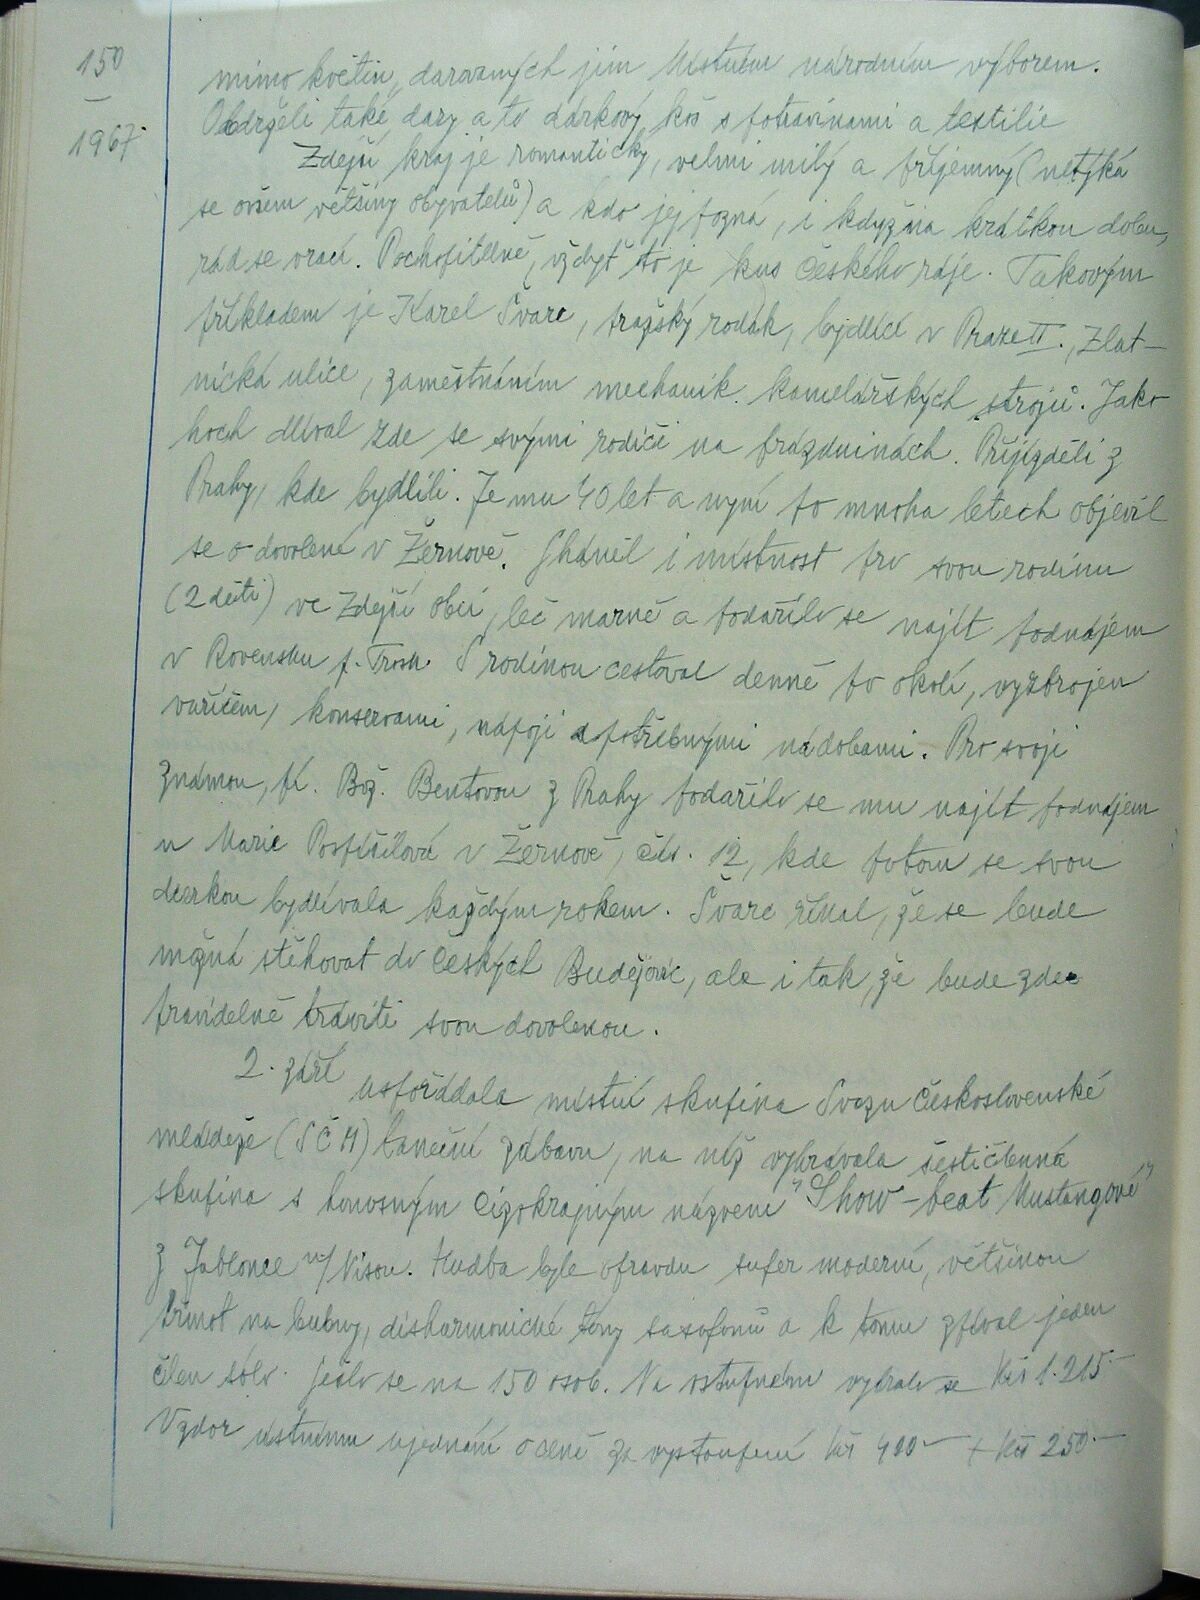 150
—
1967
mimo květin, darovaných jim Místním národním výborem.
Obdrželi také dary a to dárkový koš s potravinami a textilie
Zdejší kraj je romantický, velmi milý a příjemný (netýká
se ovšem většiny obyvatelů) a kdo jej pozná, i když na krátkou dobu,
rád se vrací. Pochopitelně, vždyť to je kus Českého ráje. Takovým
příkladem je Karel Švarc, pražský rodák, bydlící v Praze II., Zlat-
nická ulice, zaměstnáním mechanik kancelářských strojů. Jako
hoch dlíval zde se svými rodiči na prázdninách. Přijížděli z
Prahy, kde bydlili. Je mu 40 let a nyní po mnoha letech objevil
se o dovolené v Žernově. Sháněl i místnost pro svou rodinu
(2 děti) ve zdejší obci, leč marně a podařilo se najít podnájem
v Rovensku p. Trosk. S rodinou cestoval denně po okolí, vyzbrojen
vařičem, konservami, nápoji a potřebnými nádobami. Pro svoji
známou, pí. Bož. Bentovou z Prahy podařilo se mu najít podnájem
u Marie Pospíšilové v Žernově, čís. 12, kde potom se svou
dcerkou bydlívala každým rokem. Švarc říkal, že se bude
možná stěhovat do Českých Budějovic, ale i tak, že bude zde
pravidelně tráviti svou dovolenou.
2. září uspořádala místní skupina Svazu Československé
mládeže (SČM) taneční zábavu, na níž vyhrávala šestičlenná
skupina s honosným cizokrajným názvem "Show-beat Mustangové"
z Jablonce n/Nisou. Hudba byla opravdu super moderní, většinou
třímot na bubny, disharmonické tóny saxofonů a k tomu zpíval jeden
člen sólo. Sešlo se na 150 osob. Na vstupném vybralo se Kčs 1.215.—
Vzdor ústnímu ujednání o ceně za vystoupení Kčs 400.— + Kčs 250.—